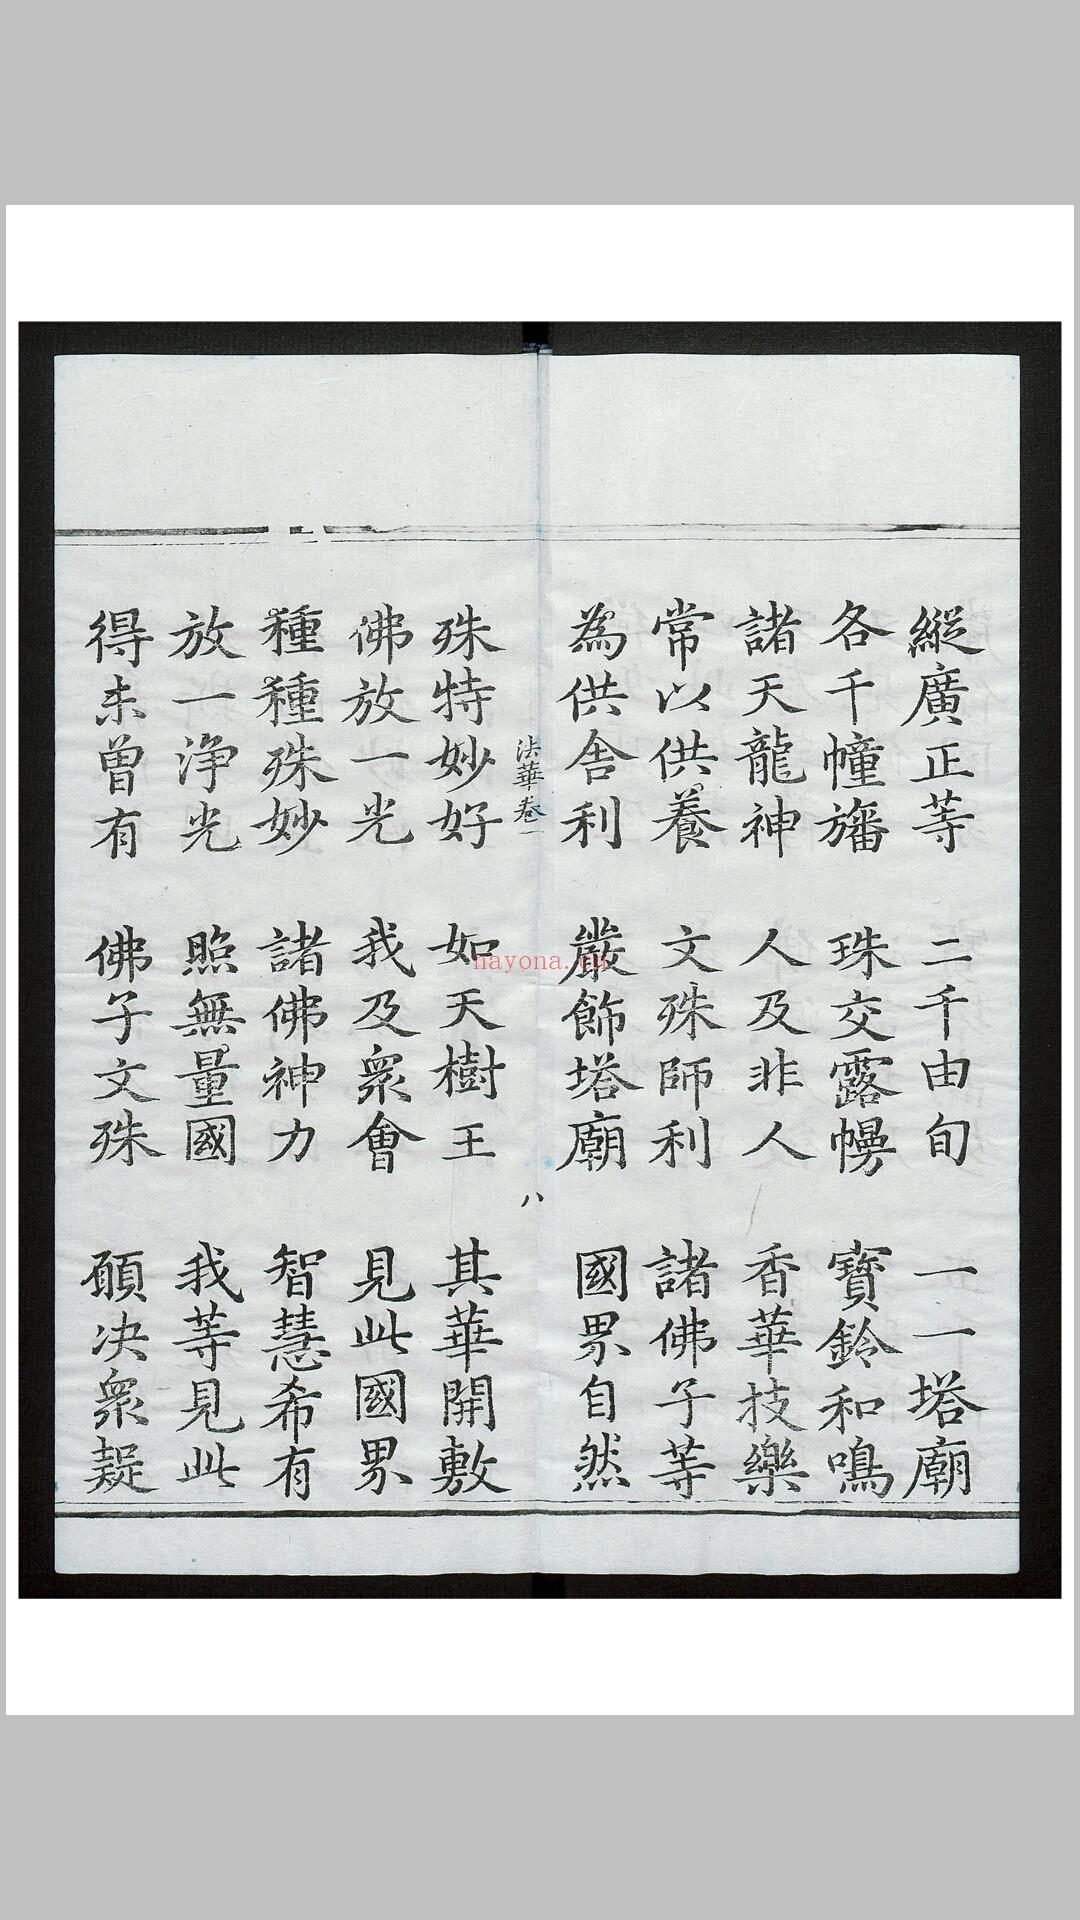 縱廣正等 二千由旬 一一塔廟
各千幢旛 珠交露幔 寶鈴和鳴
諸天龍神 人及非人 香華技樂
常以供養 文殊師利 諸佛子等
為供舍利 嚴飾塔廟 國界自然
法華卷一 八
殊特妙好 如天樹王 其華開敷
佛放一光 我及衆會 見此國界
種種殊妙 諸佛神力 智慧希有
放一淨光 照無量國 我等見此
得未曾有 佛子文殊 願決衆疑
nayona.cn